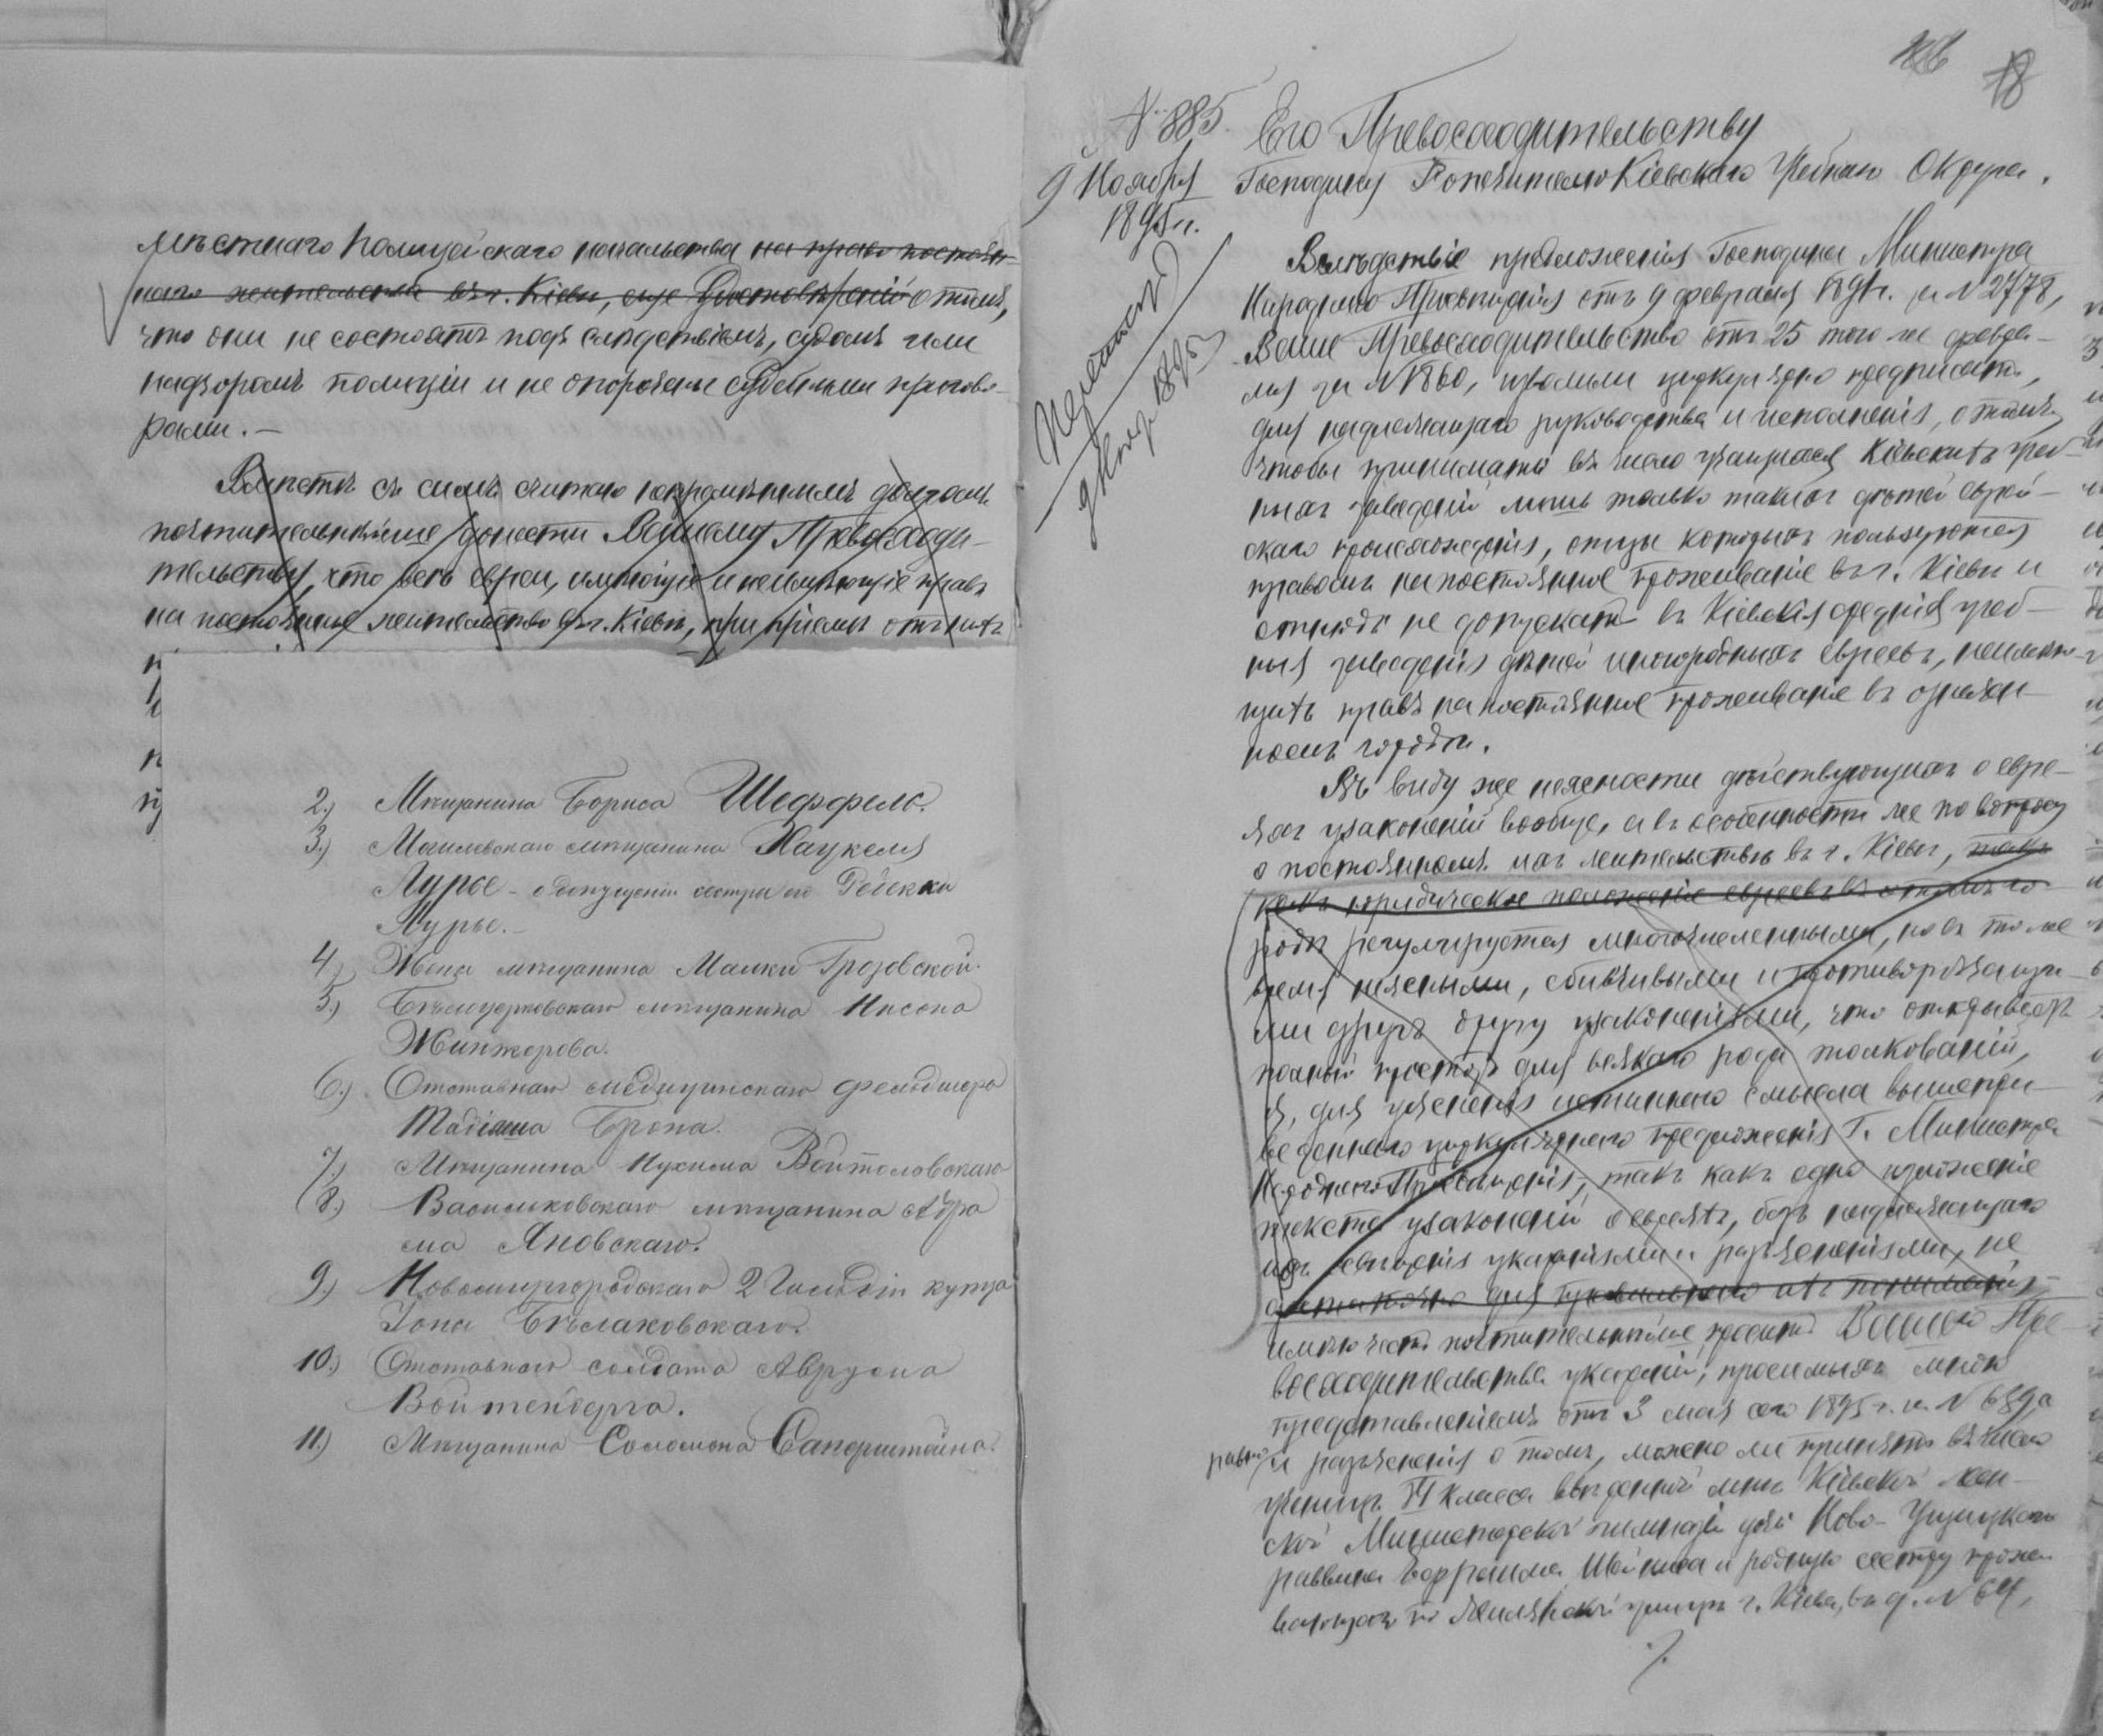 мѣстнаго полицейскаго начальства на право постоян-
наго жительства въ г. Кіевѣ, еще удостовѣреній о томъ,
что они не состоятъ подъ слѣдствіемъ, судомъ или
надзоромъ полиціи и не опорочены судебными пригово-
рами. —
Вмѣстѣ съ симъ считаю непремѣннымъ долгомъ
почтительнѣйше донести Вашему Превосходи-
тельству, что всѣ евреи, имѣющіе и неимѣющіе права
на постоянное жительство въ г. Кіевѣ, при пріемѣ отъ нихъ
2.) Мѣщанина Бориса Шеффель.
3.) Могилевскаго мѣщанина Хаукеля
Лурье - о допущеніи сестры его Ревекки
Лурье. -
4.) Жены мѣщанина Малки Грозовской.
5.) Бѣлоцерковскаго мѣщанина Нисона
Жинжерова.
6.) Отставнаго медицинскаго фельдшера
Тадіаша Брона.
7.) Мѣщанина Нухима Войтоловскаго
8.) Васильковскаго мѣщанина Абра
ма Яновскаго.
9.) Новомиргородскаго 2 Гильдіи купца
Іона Бѣлаковскаго.
10.) Отставнаго солдата Аврума
Войтенберга.
11.) Мѣщанина Соломона Саперштейна.
18
№ 885.
9 Ноября
1895 г.
Его Превосходительству
Господину Попечителю Кіевскаго Учебнаго Округа.
Вслѣдствіе предложенія Господина Министра
Народнаго Просвѣщенія отъ 9 февраля 1891 г. за № 2778,
Ваше Превосходительство отъ 25 того же февра-
ля за № 1860, изволили циркулярно предписать,
для надлежащаго руководства и исполненія, о томъ,
чтобы принимать въ число учащихся Кіевскихъ учеб-
ныхъ заведеній лишь только такихъ дѣтей еврей-
скаго происхожденія, отцы которыхъ пользуются
правомъ на постоянное проживаніе въ г. Кіевѣ и
отнюдь не допускать въ Кіевскія среднія учеб-
ныя заведенія дѣтей иногородныхъ евреевъ, неимѣю-
щихъ правъ на постоянное проживаніе въ означен-
номъ городѣ.
Въ виду же неясности дѣйствующихъ о евре-
яхъ узаконеній вообще, а въ особенности же по вопросу
о постоянномъ ихъ жительствѣ въ г. Кіевѣ, такъ
какъ юридическое положеніе евреевъ въ этомъ го-
родѣ регулируется многочисленными, но въ то же
время неясными, сбивчивыми и противорѣчащи-
ми другъ другу узаконеніями, что открываетъ
полный просторъ для всякаго рода толкованій,
я, для уясненія истиннаго смысла вышепри-
веденнаго циркулярнаго предложенія Г. Министра
Народнаго Просвѣщенія, такъ какъ одно изложеніе
текста узаконеній о евреяхъ, безъ надлежащаго
ихъ освѣщенія указаніями и разъясненіями, не
достаточно для правильнаго ихъ пониманія,
имѣю честь почтительнѣйше просить Вашего Пре-
восходительства указаній, просимыхъ мною
представленіемъ отъ 3 мая сего 1895 г. за № 639, а
равно и разъясненія о томъ, можно ли принять въ число
ученицъ VI класса ввѣренной мнѣ Кіевской жен-
ской Министерской гимназіи дочь Ново-Ушицкаго
раввина Ефраима и родную сестру прожи-
вающаго по улицѣ г. Кіева, въ д. № 64,
./.